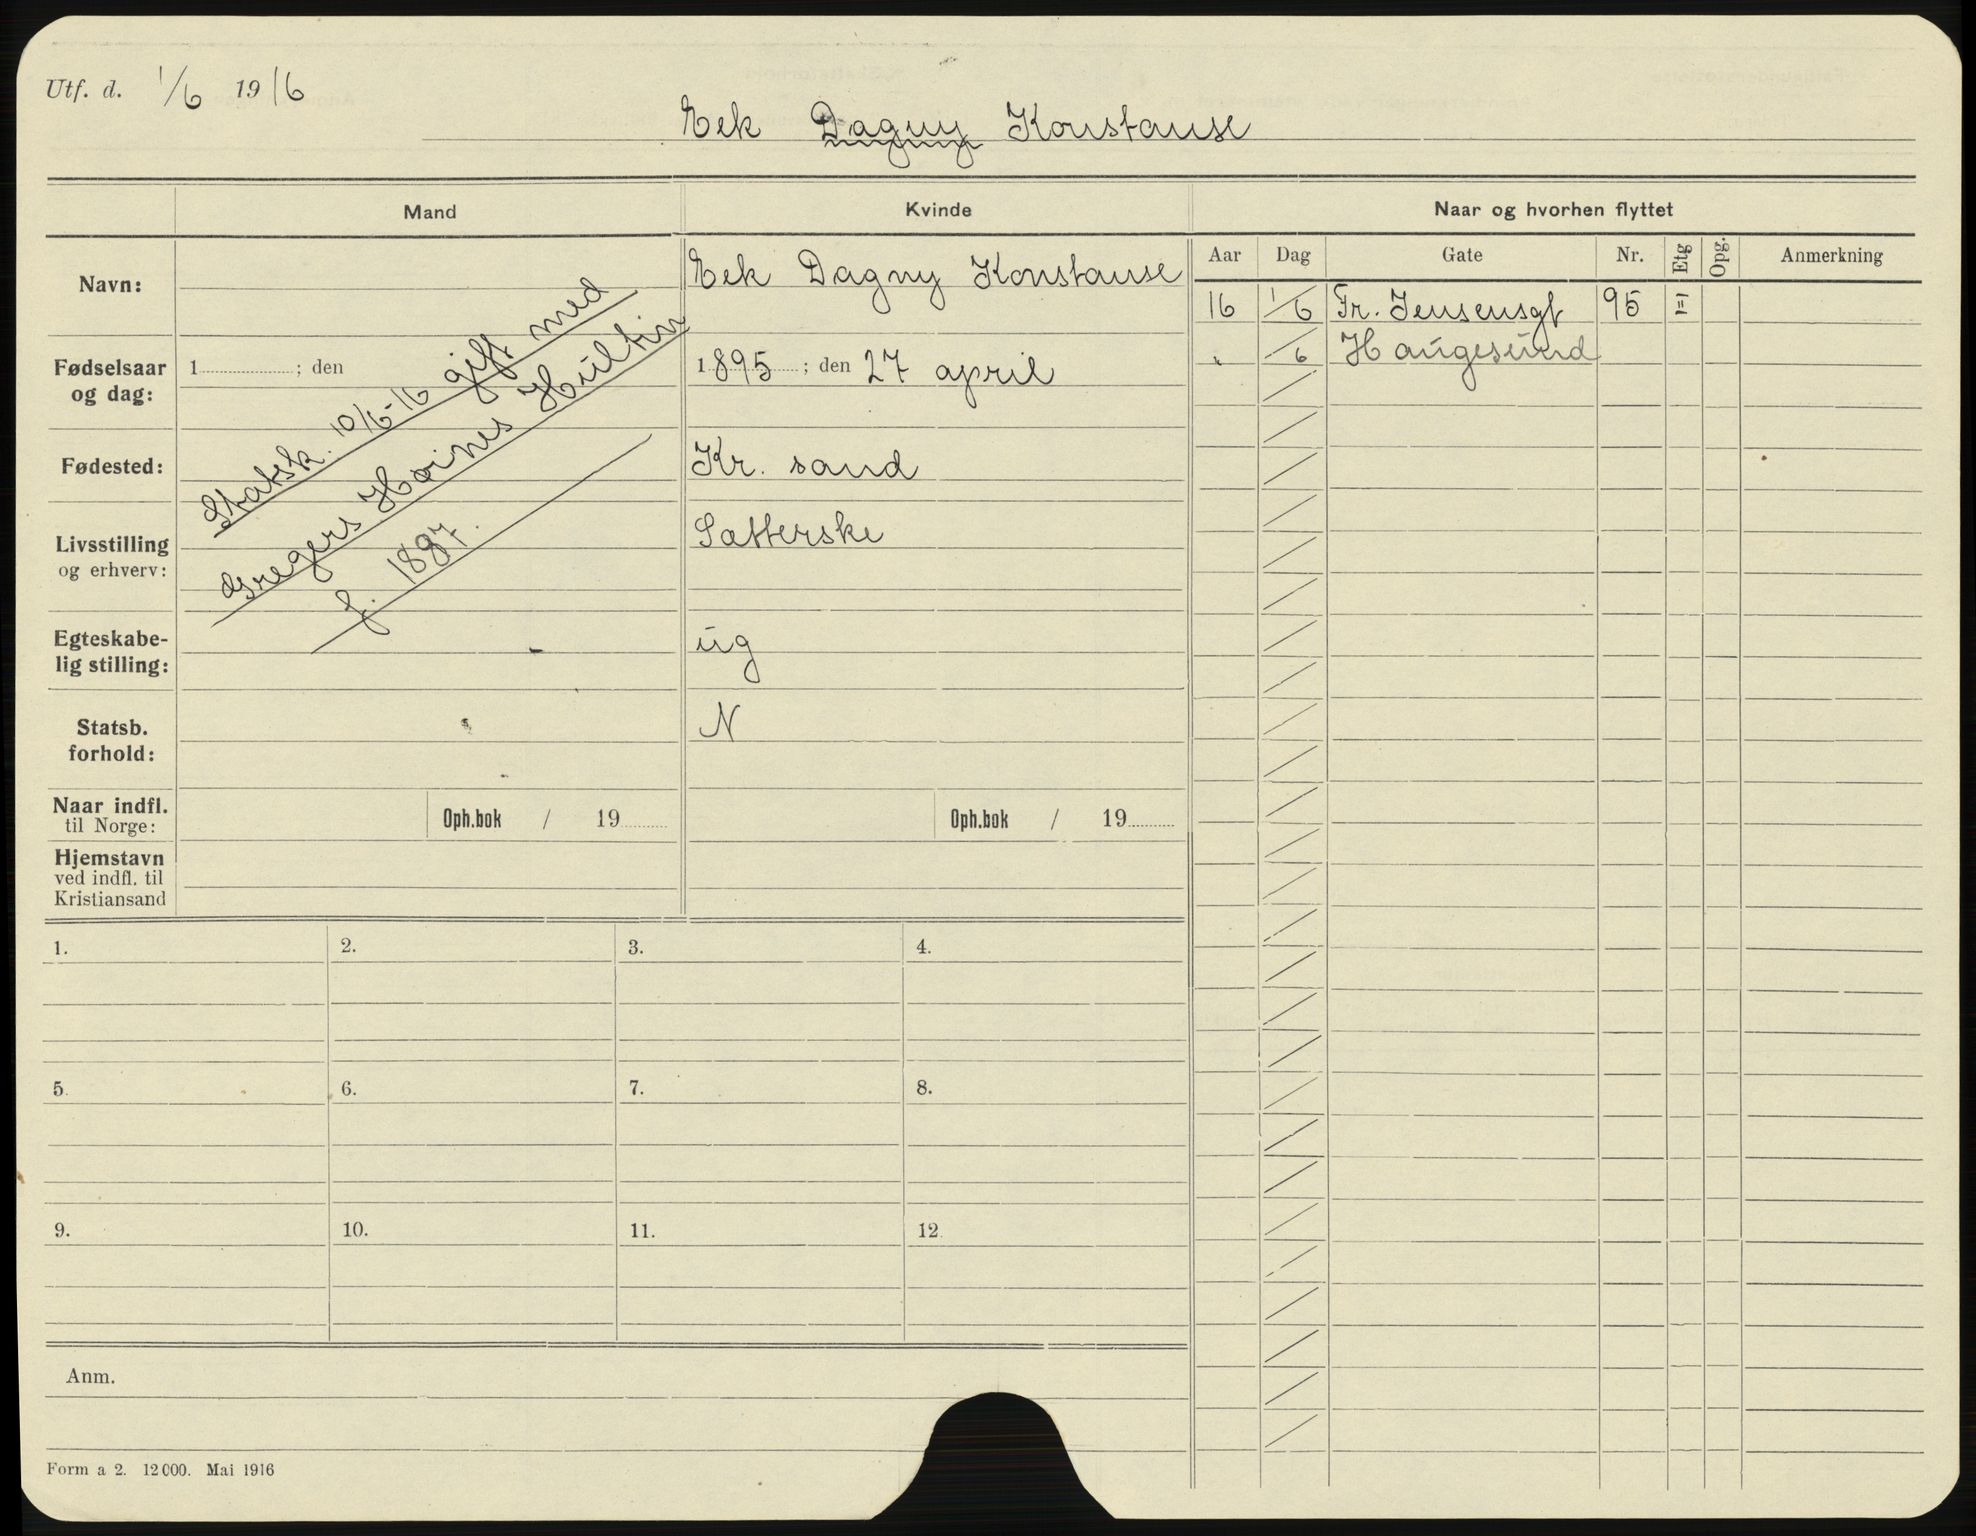 Utf. d. 1/6 1916
Eek Dagny Konstanse
Mand
Kvinde
Naar og hvorhen flyttet
Aar Dag Gate Nr. Etg Opg. Anmerkning
Navn:
Eek Dagny Konstanse
16 1/6 Fr. Jensensgt 95 II
" /6 Haugesund
Fødselsaar
og dag:
1 ; den
1895 ; den 27 april
Statsk. 10/6-16 gift med
Gregers Høines Hultin
f. 1887.
Fødested:
Kr. sand
Livsstilling
og erhverv:
Sætterske
Egteskabe-
lig stilling:
ug
Statsb.
forhold:
N
Naar indfl.
til Norge:
Oph.bok / 19
Oph.bok / 19
Hjemstavn
ved indfl. til
Kristiansand
1. 2. 3. 4.
5. 6. 7. 8.
9. 10. 11. 12.
Anm.
Form a 2. 12000. Mai 1916